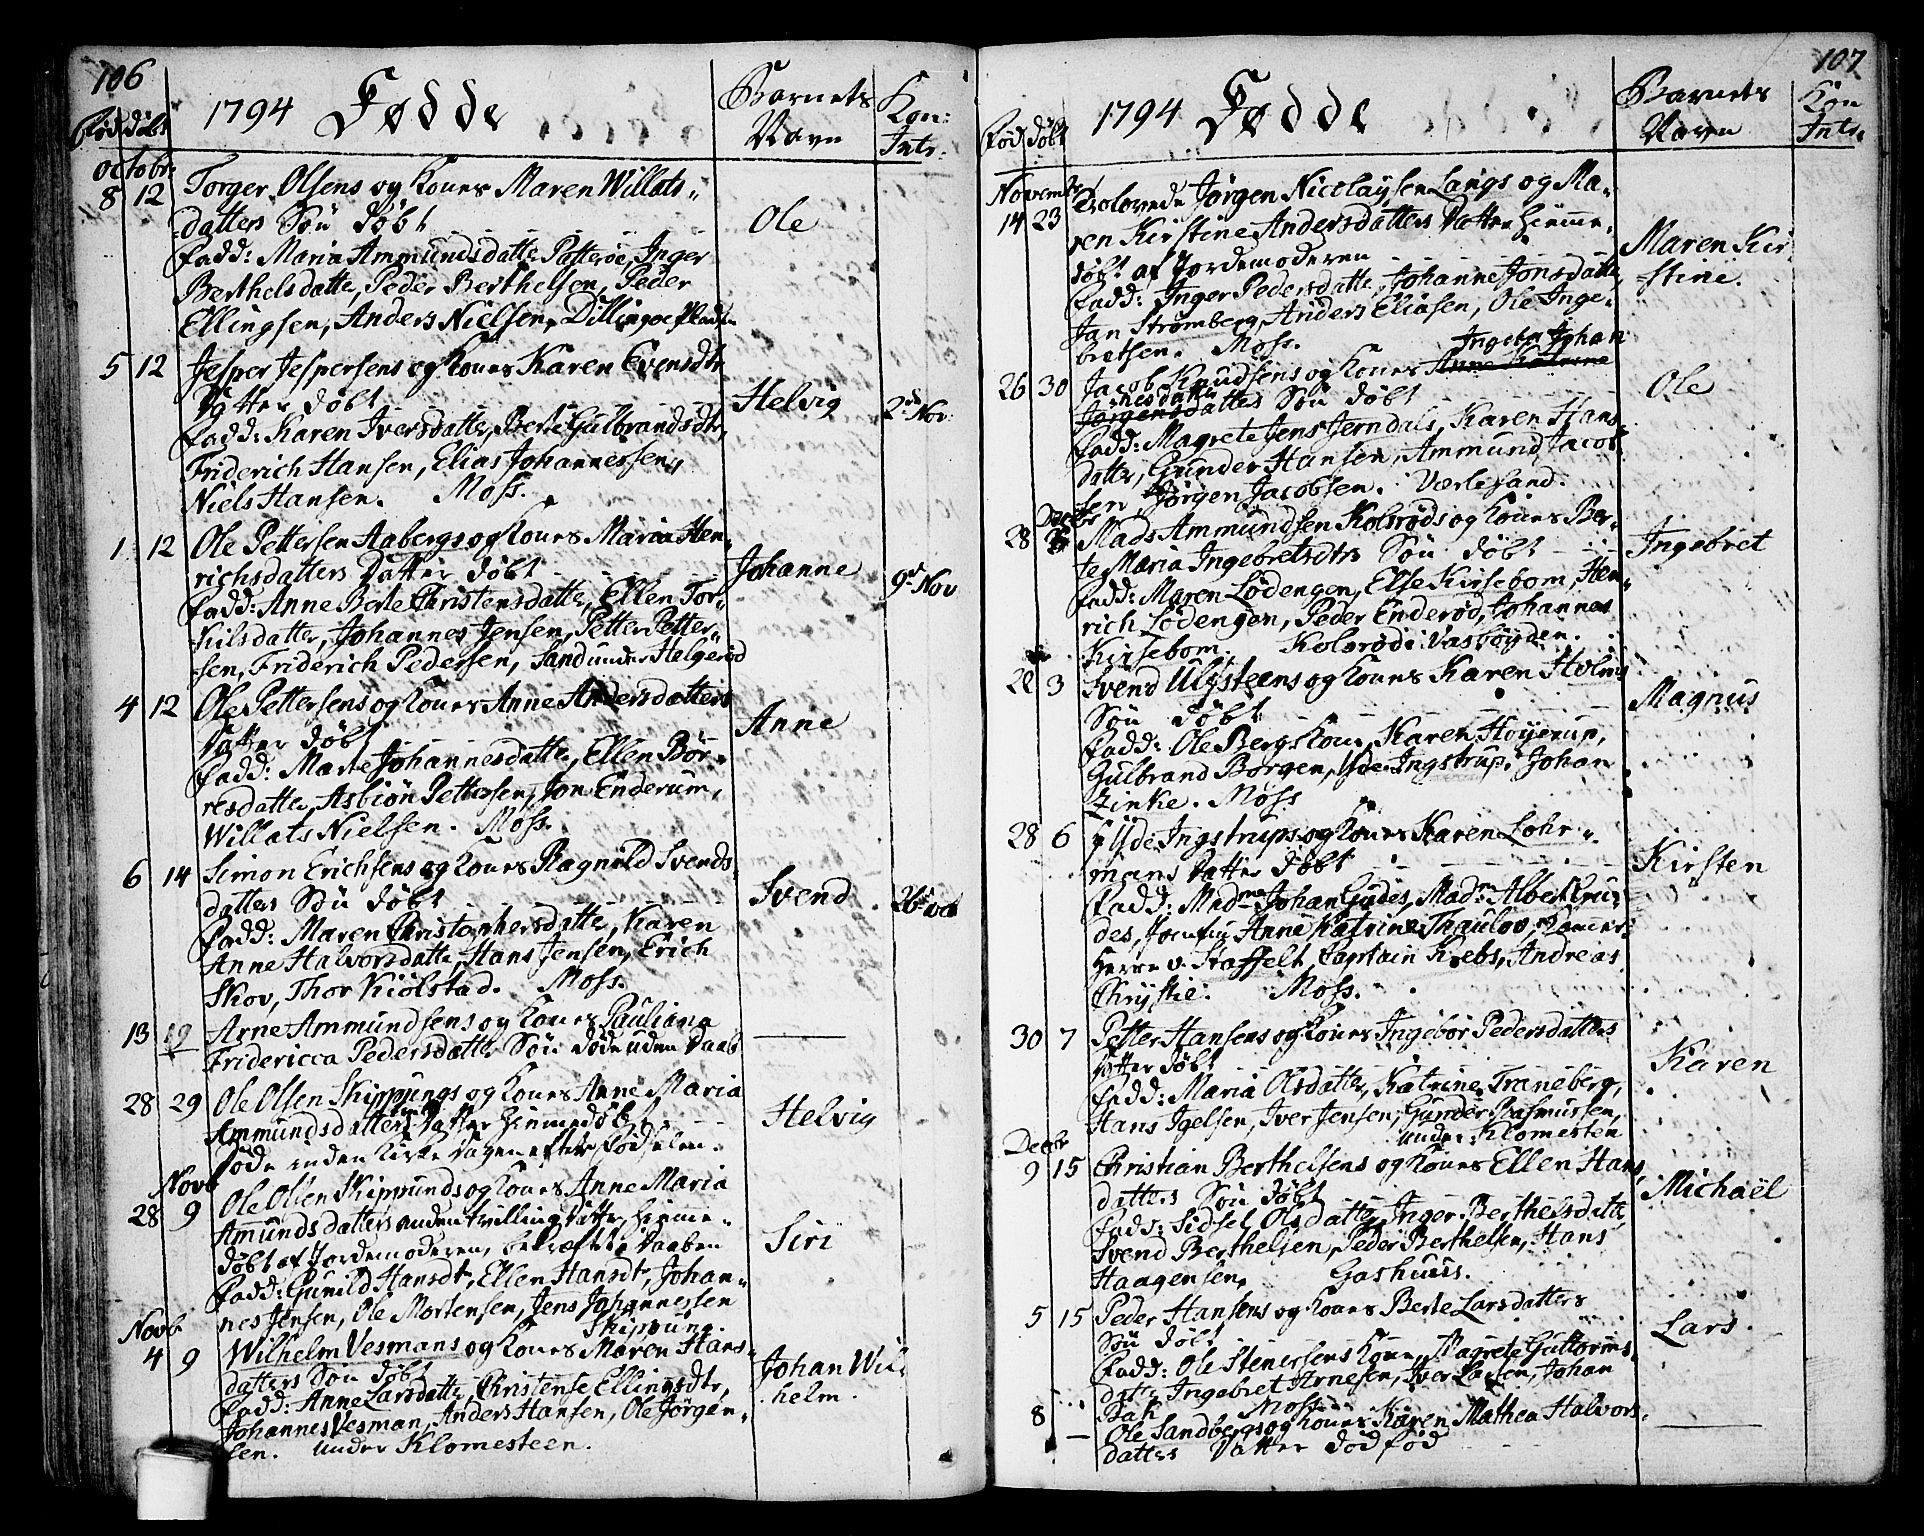 106
1794 Fødde
Barnets Navn
Kon: Intr:
Fød døbt
Octobr:
8 12 Torger Olsens og Kones Maren Willats-
datters Søn døbt
Ole
Fadd: Maria Ammundsdatter Patterøe, Inger
Berthelsdatter, Peder Berthelsen, Peder
Ellingsen, Anders Nielsen, Dillingøe Pladsen
5 12 Jesper Jespersens og Kones Karen Evensdtr
Datter døbt
Helvig
2de Nov:
Fadd: Karen Iversdatter, Berte Gulbrandsdtr,
Friderich Hansen, Elias Johannessen,
Niels Hansen. Moss.
1 12 Ole Pettersen Aabergs og Kones Maria Hen-
richsdatters Datter døbt
Johanne
9de Nov
Fadd: Anne Berte Christensdatter, Ellen Tor-
kilsdatter, Johannes Jensen, Petter Petter-
sen, Friderich Pedersen, Sand under Helgerød
4 12 Ole Pettersens og Kones Anne Andersdatters
Datter døbt
Anne
Fadd: Marte Johannesdatter, Ellen Bør-
resdatter, Asbiön Pettersen, Jon Enderum,
Willats Nielsen. Moss.
6 14 Simon Erichsens og Kones Ragnild Svends-
datters Søn døbt
Svend
Fadd: Maren Christophersdatter, Karen
Anne Halvorsdatter, Hans Jensen, Erich
Skov, Thor Kiölstad. Moss.
13 19 Arne Ammundsens og Kones Pauliana
Fridericca Pedersdatters Søn døde uden Daab
28 29 Ole Olsen Skippungs og Kones Anne Maria
Ammundsdatters Datter hiemmedøbt
Helvig
døde inden Kirke Dagen efter Fødselen.
Novb
28 9 Ole Olsen Skippunds og Kones Anne Maria
Amundsdatters anden tvilling Datter, hiemme-
døbt af Jordemoderen, bekræftet Daaben
Siri
Fadd: Gunild Hansdt, Ellen Hansdt, Johan-
nes Jensen, Ole Mortensen, Jens Johannessen
Skippung.
Novb
4 9 Wilhelm Vesmans og Kones Maren Hans-
datters Søn døbt
Johan Wil-
helm.
Fadd: Anne Larsdatter, Christense Ellingsdtr,
Johannes Vesman, Anders Hansen, Ole Jørgen-
sen. under Klomesteen.
107
1794 Fødde
Barnets Navn
Kon Intr.
Fød døbt
Novembr
14 23 Trolovede Jørgen Nicolaysen Langs og Ma-
ren Kirstine Andersdatters Datter hiemme-
døbt af Jordemoderen
Maren Kir-
stine.
Fadd: Inger Pedersdatter, Johanne Jonsdatter,
Jan Strømberg, Anders Eliasen, Ole Inge-
bretsen. Moss.
Ingebr Johan
26 30 Jacob Knudsens og Kones Anne Katrine
nesdatter
Jørgensdatters Søn døbt
Ole
Fadd: Magrete Jens Jerndals, Karen Hans
datter, Gunder Hansen, Ammund Jacob-
sen, Jørgen Jacobsen. Værlesand.
Decbr
28 Mads Ammundsen Kolsrøds og Kones Ber-
te Maria Ingebretsdtrs Søn døbt
Ingebret
Fadd: Maren Lödengen, Else Kirsebom, Hen-
rich Lödengen, Peder Enderød, Johannes
Kirsebom, Kolsrød i Vasböyden.
22 3 Svend Ulysteens og Kones Karen Holms
Søn døbt
Magnus
Fadd: Ole Bergs Kone, Karen Høyerup,
Gulbrand Borgen, Yde Ingstrup, Johan
Zinke. Moss
28 6 Yde Ingstrups og Kones Karen Lohr-
mans Datter døbt
Kirsten
Fadd: Madme Johan Gudes, Madm Albert Gu-
des, Jomfru Anne Katrine Thaulov, Kamer-
Herre v. Staffelt, Captain Krebs, Andreas
Chrystie. Moss.
30 7 Petter Hansens og Kones Ingebor Pedersdatters
Datter døbt
Karen
Fadd: Maria Olsdatter, Katrine Traneberg,
Hans Igelsen, Iver Jensen, Gunder Rasmussen,
under Klomesten
Decbr
9 15 Christian Berthelsens og Kones Ellen Hans
datters Søn døbt
Michaël
Fadd: Sidsel Olsdatter, Inger Berthelsdatter,
Svend Berthelsen, Peder Berthelsen, Hans
Haagensen, Gashuus.
5 15 Peder Hansens og Kones Berte Larsdatters
Søn døbt
Lars
Fadd: Ole Stenersens Kone, Magrete Guttorms-
datter, Ingebret Arnesen, Iver Larsen, Johan
Bak Moss
8 — Ole Sandbergs og Kones Karen Mathea Halvors-
datters Datter dødfød